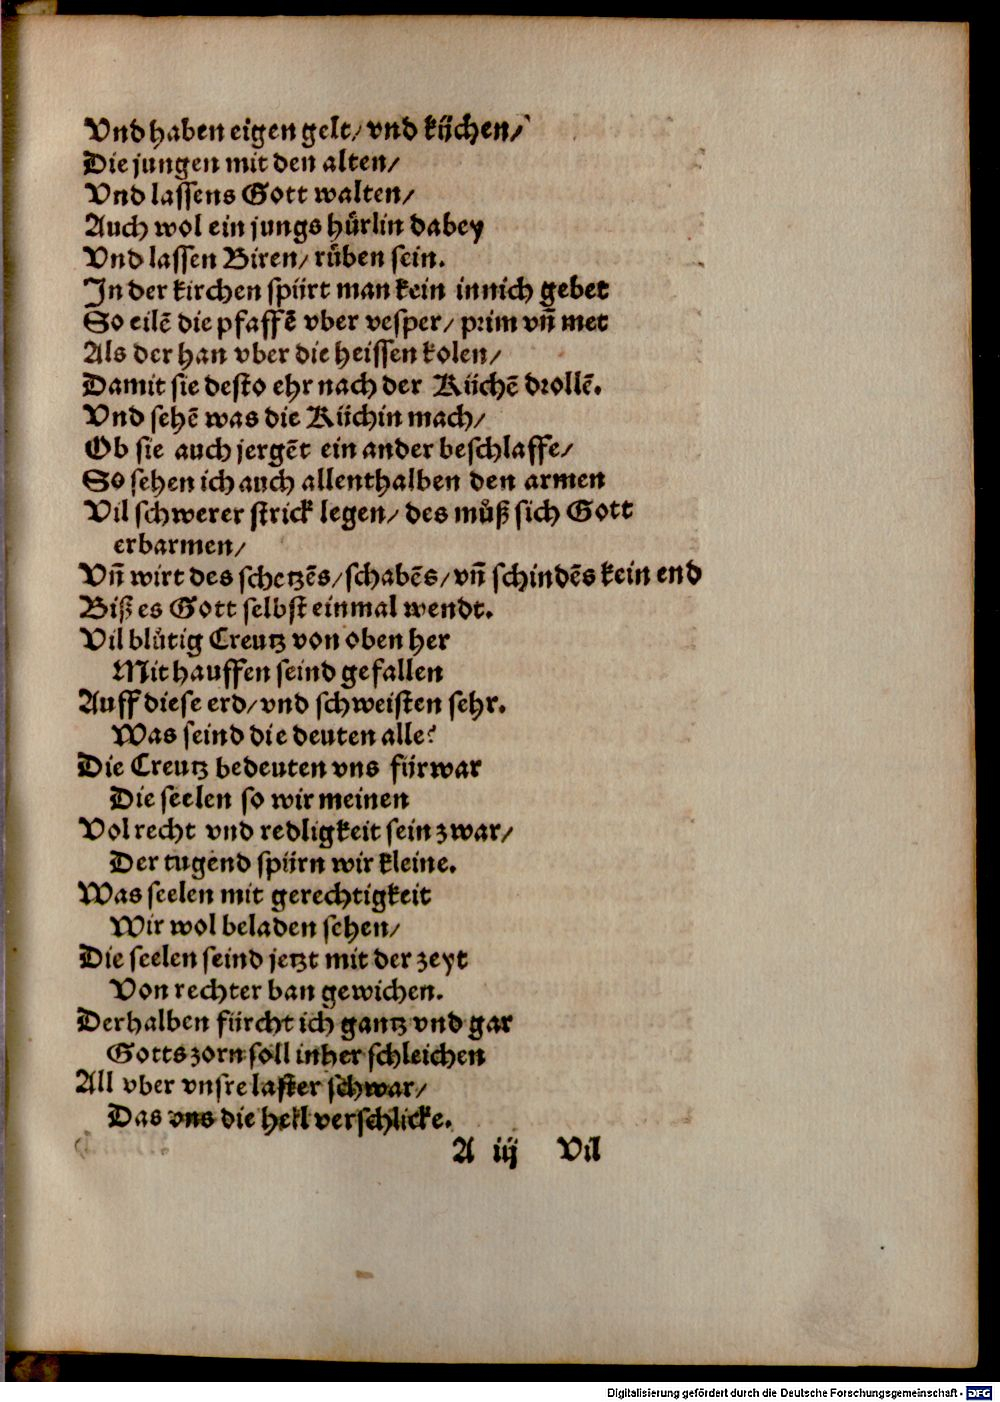 Vnd haben eigen gelt/ vnd küchen/
Die jungen mit den alten/
Vnd lassens Gott walten/
Auch wol ein jungs hürlin dabey
Vnd lassen Biren/ rüben sein.
In der kirchen spürt man kein innich gebet
So eilē die pfaffē vber vesper/ prim vñ met
Als der han vber die heissen kolen/
Damit sie desto ehr nach der Küchē drollē.
Vnd sehē was die Küchin mach/
Ob sie auch jergēt ein ander beschlaffe/
So sehen ich auch allenthalben den armen
Vil schwerer strick legen/ des můß sich Gott
erbarmen/
Vñ wirt des schetzēs/ schabēs/ vñ schindēs kein end
Biß es Gott selbst einmal wendt.
Vil blůtig Creutz von oben her
Mit hauffen seind gefallen
Auff diese erd/ vnd schweisten sehr.
Was seind die deuten alle?
Die Creutz bedeuten vns fürwar
Die seelen so wir meinen
Vol recht vnd redligkeit sein zwar/
Der tugend spürn wir kleine.
Was seelen mit gerechtigkeit
Wir wol beladen sehen/
Die seelen seind jetzt mit der zeyt
Von rechter ban gewichen.
Derhalben fürcht ich gantz vnd gar
Gotts zorn soll inher schleichen
All vber vnsre laster schwar/
Das vns die hell verschlicke.
A iij Vil
Digitalisierung gefördert durch die Deutsche Forschungsgemeinschaft - DFG